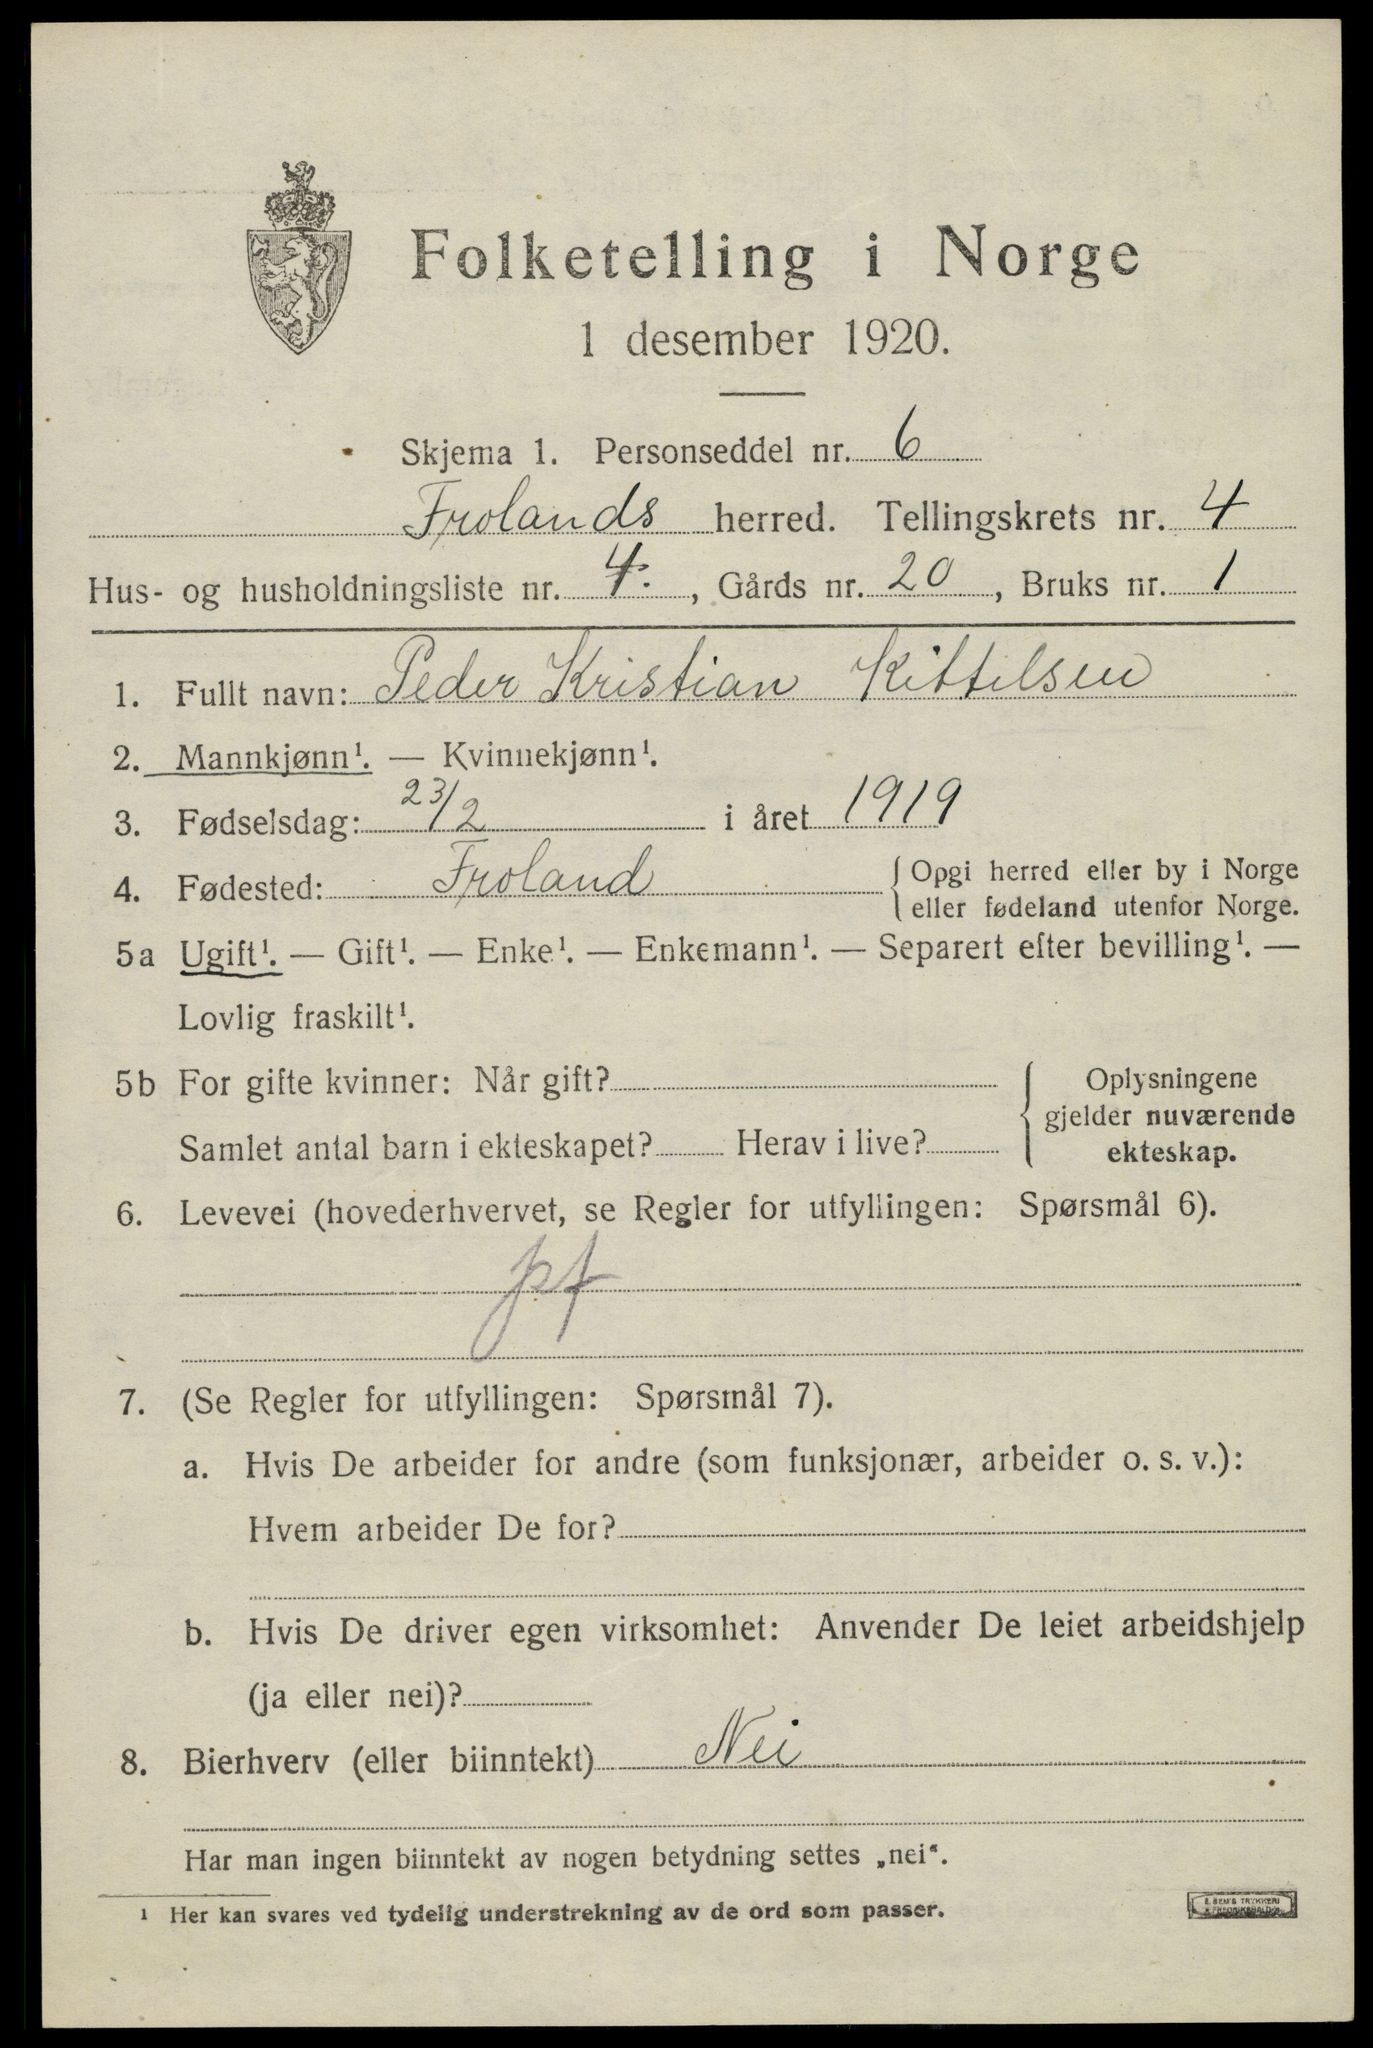 Folketelling i Norge
1 desember 1920.
Skjema 1. Personseddel nr. 6
Frolands herred. Tellingskrets nr. 4
Hus- og husholdningsliste nr. 4., Gårds nr. 20, Bruks nr. 1
1. Fullt navn: Peder Kristian Kittilsen
2. Mannkjønn¹. — Kvinnekjønn¹.
3. Fødselsdag: 23/2 i året 1919
4. Fødested: Froland { Opgi herred eller by i Norge
eller fødeland utenfor Norge.
5a Ugift¹. — Gift¹. — Enke¹. — Enkemann¹. — Separert efter bevilling¹. —
Lovlig fraskilt¹.
5b For gifte kvinner: Når gift? { Oplysningene
gjelder nuværende
Samlet antal barn i ekteskapet? Herav i live? ekteskap.
6. Levevei (hovederhvervet, se Regler for utfyllingen: Spørsmål 6).
pf
7. (Se Regler for utfyllingen: Spørsmål 7).
a. Hvis De arbeider for andre (som funksjonær, arbeider o. s. v.):
Hvem arbeider De for?
b. Hvis De driver egen virksomhet: Anvender De leiet arbeidshjelp
(ja eller nei)?
8. Bierhverv (eller biinntekt) Nei
Har man ingen biinntekt av nogen betydning settes „nei“.
¹ Her kan svares ved tydelig understrekning av de ord som passer.